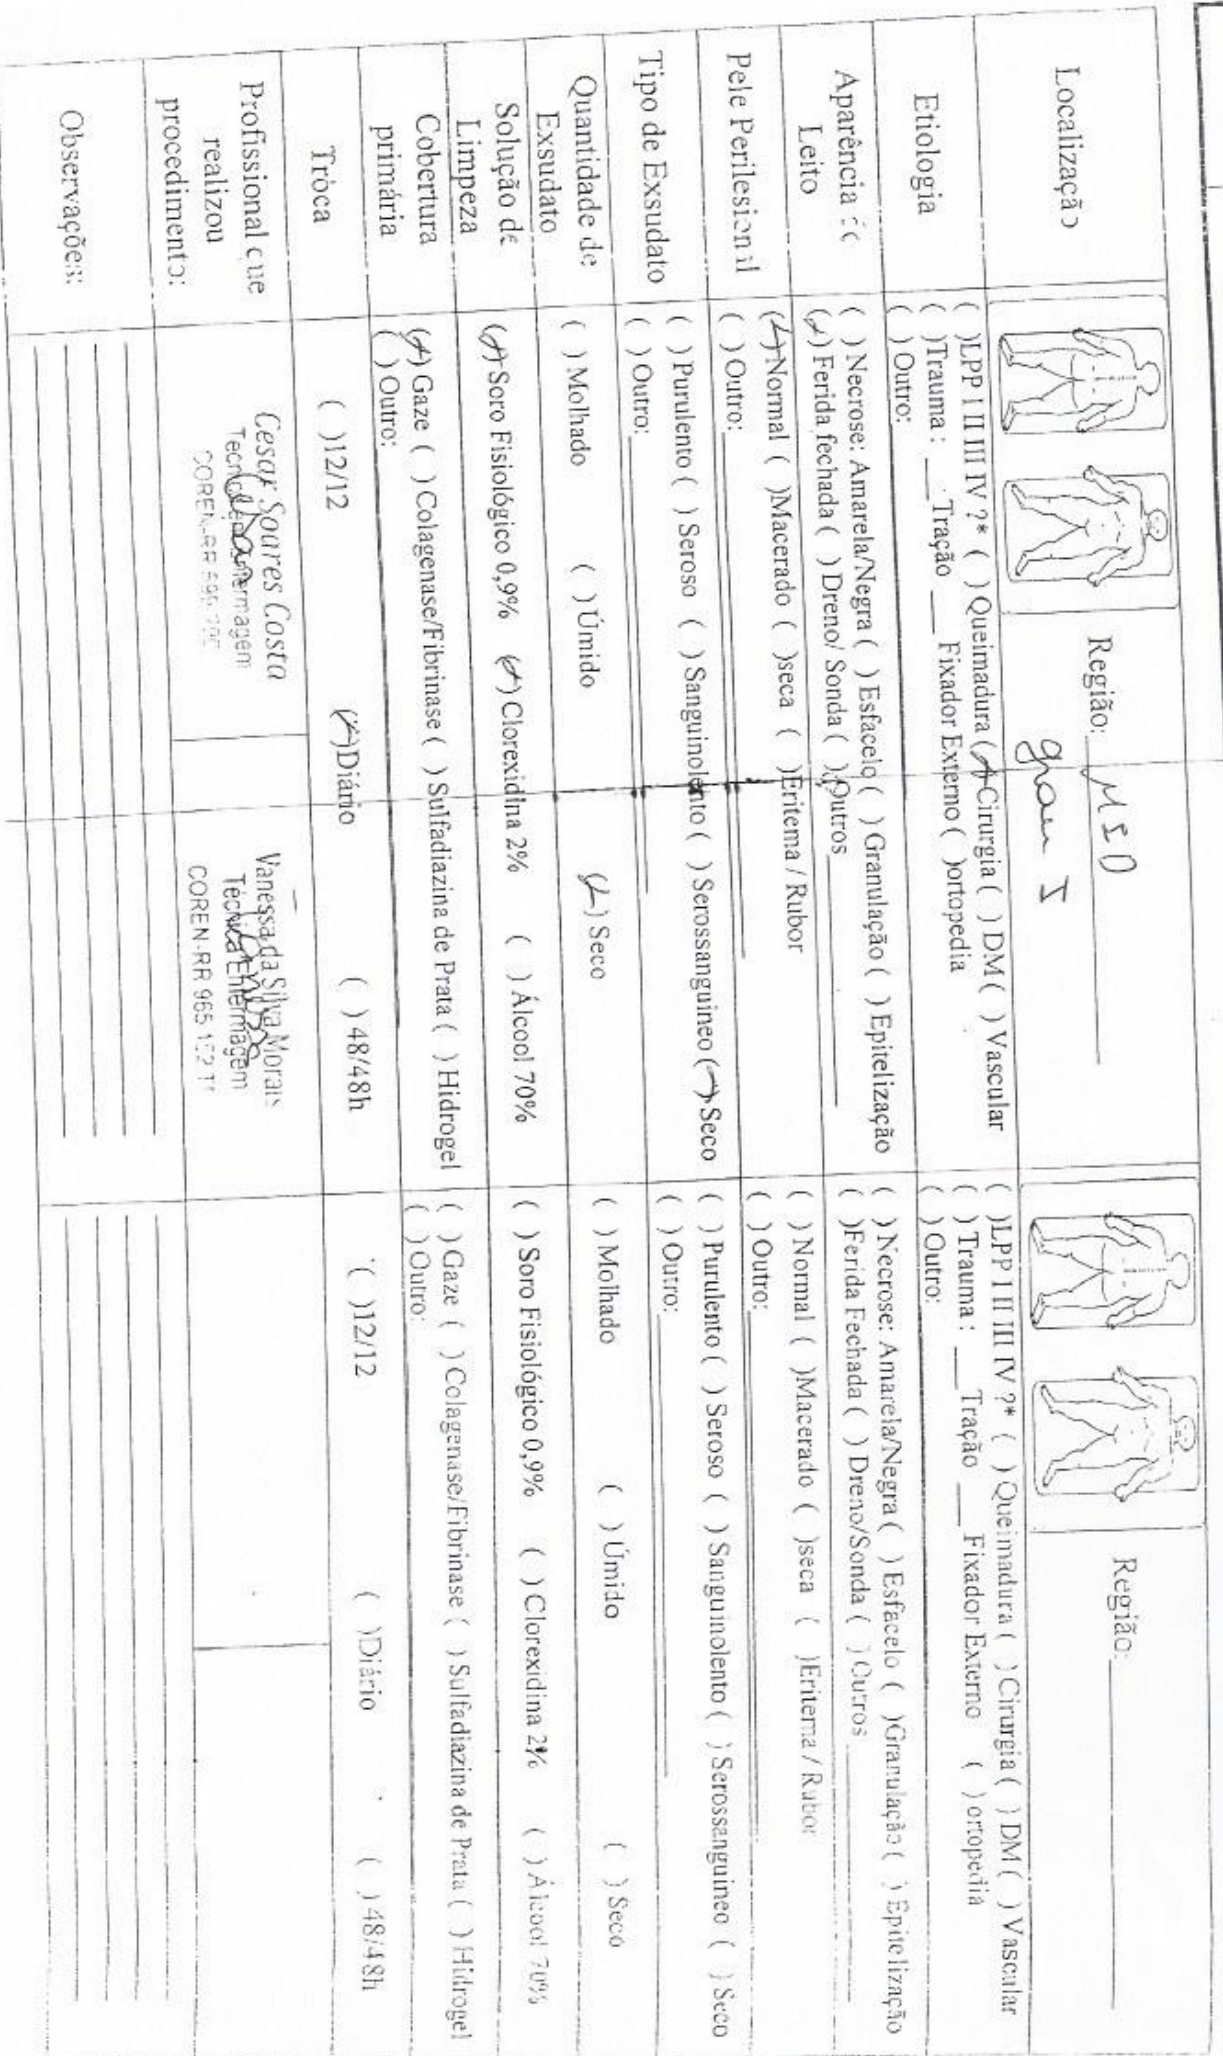 Localização
Região: MSD
grau I
Região:
Etiologia
( )LPP I II III IV ?* ( ) Queimadura (x) Cirurgia ( ) DM ( ) Vascular
( )Trauma : ___ Tração ___ Fixador Externo ( )ortopedia
( ) Outro:
( )LPP I II III IV ?* ( ) Queimadura ( ) Cirurgia ( ) DM ( ) Vascular
( ) Trauma : ___ Tração ___ Fixador Externo ( ) ortopedia
( ) Outro:
Aparência
Leito
( ) Necrose: Amarela/Negra ( ) Esfacelo ( ) Granulação ( ) Epitelização
(x) Ferida fechada ( ) Dreno/ Sonda ( ) Outros
( ) Necrose: Amarela/Negra ( ) Esfacelo ( )Granulação ( ) Epitelização
( )Ferida Fechada ( ) Dreno/Sonda ( ) Outros
Pele Perilesional
(x)Normal ( )Macerado ( )seca ( )Eritema / Rubor
( ) Outro:
( ) Normal ( )Macerado ( )seca ( )Eritema / Rubor
( ) Outro:
Tipo de Exsudato
( ) Purulento ( ) Seroso ( ) Sanguinolento ( ) Serossanguineo (x) Seco
( ) Outro:
( ) Purulento ( ) Seroso ( ) Sanguinolento ( ) Serossanguineo ( ) Seco
( ) Outro:
Quantidade de
Exsudato
( ) Molhado ( ) Úmido (x) Seco
( ) Molhado ( ) Úmido ( ) Seco
Solução de
Limpeza
(x) Soro Fisiológico 0,9% (x) Clorexidina 2% ( ) Álcool 70%
( ) Soro Fisiológico 0,9% ( ) Clorexidina 2% ( ) Álcool 70%
Cobertura
primária
(x) Gaze ( ) Colagenase/Fibrinase ( ) Sulfadiazina de Prata ( ) Hidrogel
( ) Outro:
( ) Gaze ( ) Colagenase/Fibrinase ( ) Sulfadiazina de Prata ( ) Hidrogel
( ) Outro:
Troca
( )12/12 (x)Diário ( ) 48/48h
( )12/12 ( )Diário ( ) 48/48h
Profissional que
realizou
procedimento:
Cesar Soares Costa
COREN-RR
Vanessa da Silva Morais
Técnica Enfermagem
COREN-RR 965
Observações: